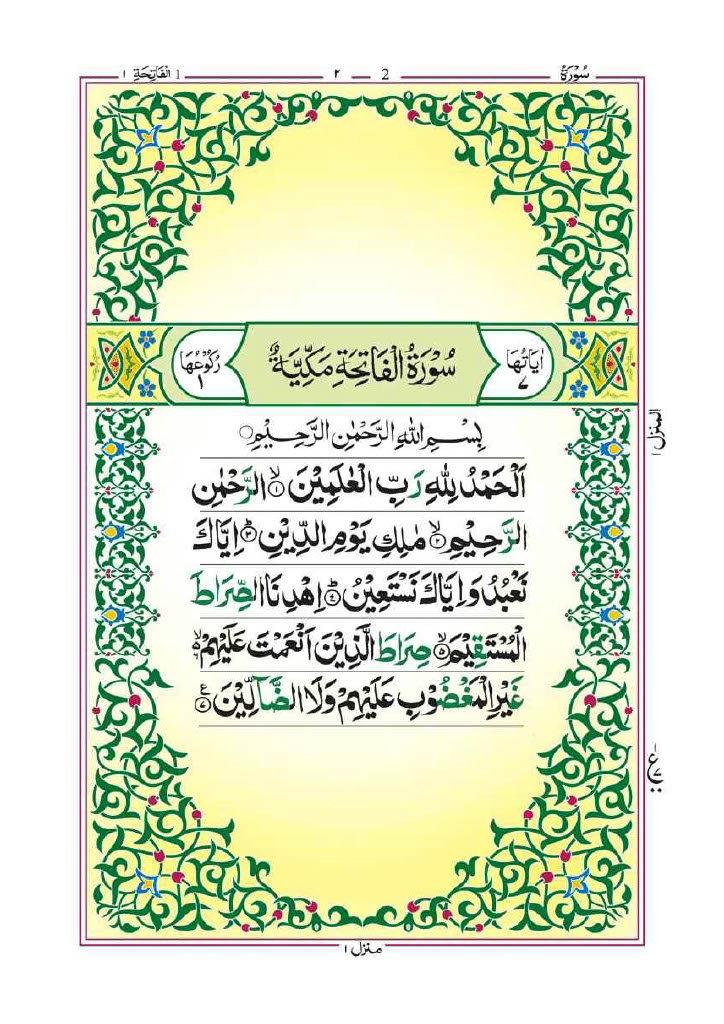 سُوْرَةُ 2 ٢ 1 اَلْفَاتِحَةِ ١
اٰيَاتُهَا ٧ سُوْرَةُ الْفَاتِحَةِ مَكِّيَّةٌ رُكُوْعُهَا ١
بِسْمِ اللهِ الرَّحْمٰنِ الرَّحِيْمِ
اَلْحَمْدُ لِلّٰهِ رَبِّ الْعٰلَمِيْنَ ۙ﴿١﴾ الرَّحْمٰنِ
الرَّحِيْمِ ۙ﴿٢﴾ مٰلِكِ يَوْمِ الدِّيْنِ ؕ﴿٣﴾ اِيَّاكَ
نَعْبُدُ وَاِيَّاكَ نَسْتَعِيْنُ ؕ﴿٤﴾ اِهْدِنَا الصِّرَاطَ
الْمُسْتَقِيْمَ ۙ﴿٥﴾ صِرَاطَ الَّذِيْنَ اَنْعَمْتَ عَلَيْهِمْ ۙ﴿٦﴾
غَيْرِ الْمَغْضُوْبِ عَلَيْهِمْ وَلَا الضَّآلِّيْنَ ﴿٧﴾
المنزل ١
ع ٧
منزل ١